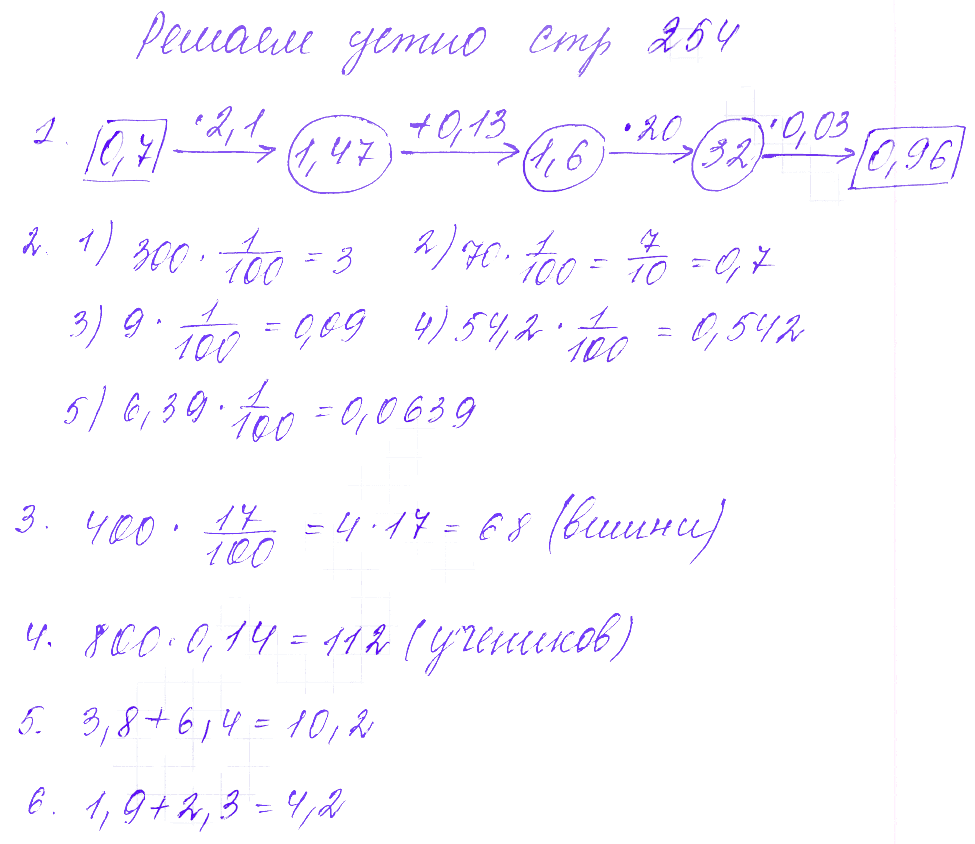 Решаем устно стр 254
1. 0,7 ·2,1 → 1,47 +0,13 → 1,6 ·20 → 32 ·0,03 → 0,96
2. 1) 300 · 1/100 = 3 2) 70 · 1/100 = 7/10 = 0,7
3) 9 · 1/100 = 0,09 4) 54,2 · 1/100 = 0,542
5) 6,39 · 1/100 = 0,0639
3. 400 · 17/100 = 4 · 17 = 68 (вишни)
4. 800 · 0,14 = 112 (учеников)
5. 3,8 + 6,4 = 10,2
6. 1,9 + 2,3 = 4,2